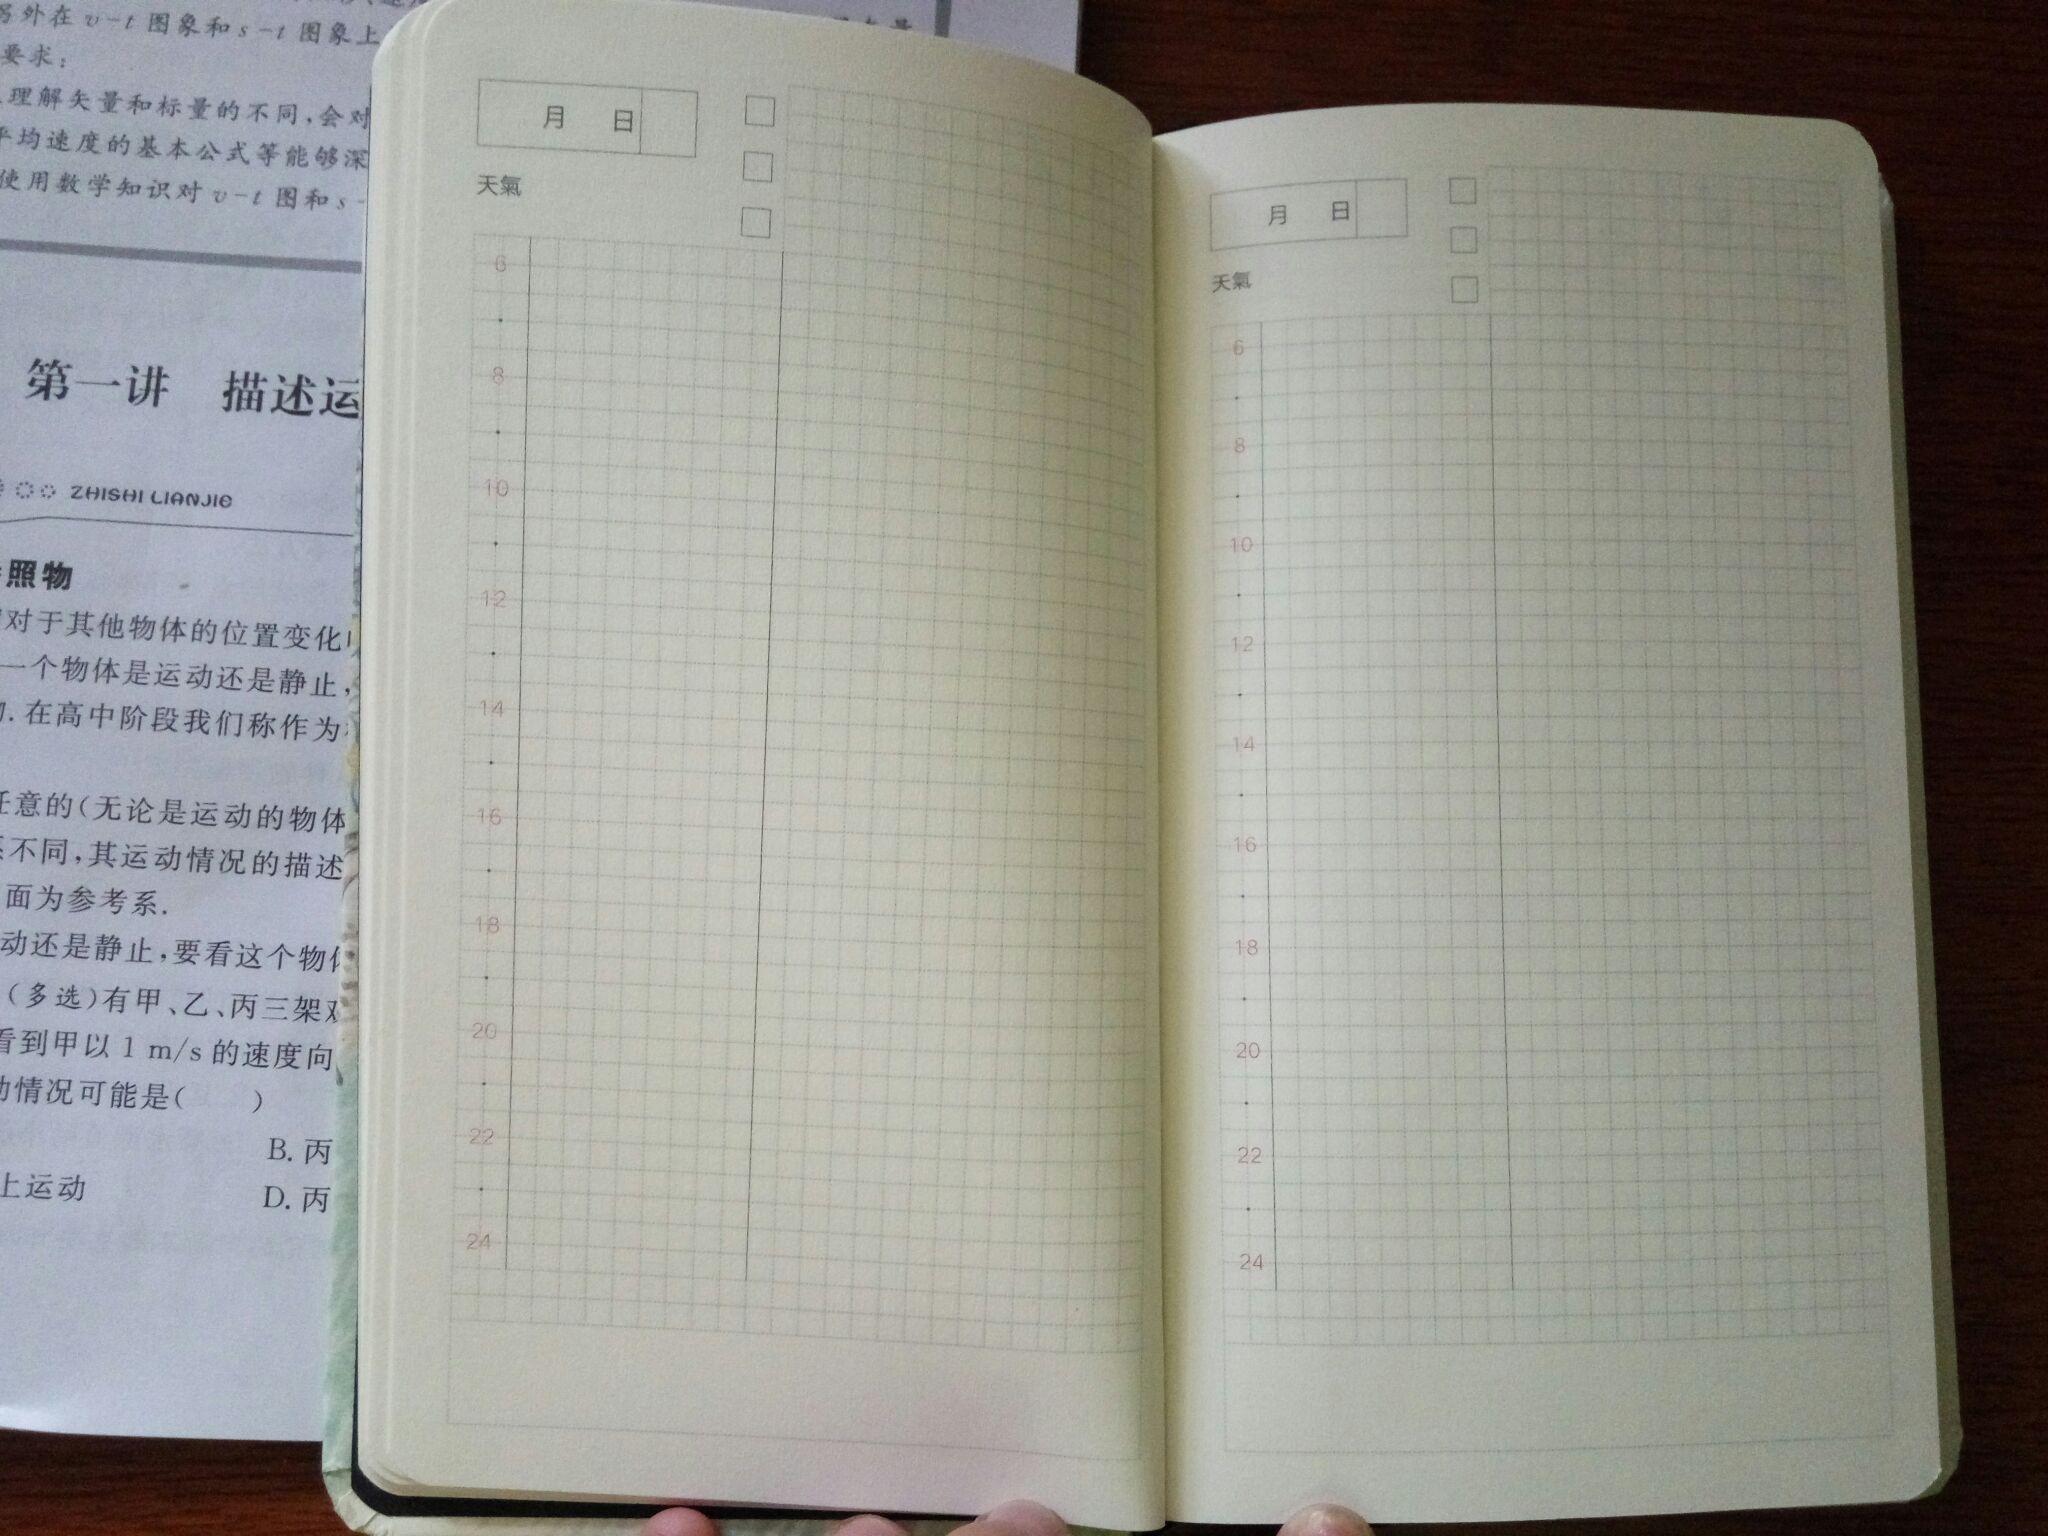 另外在 v-t 图象和 s-t 图象上
要求:
理解矢量和标量的不同,会对
平均速度的基本公式等能够深
使用数学知识对 v-t 图和 s-
第一讲 描述运
ZHISHI LIANJIE
照物
对于其他物体的位置变化
一个物体是运动还是静止,
.在高中阶段我们称作为
任意的(无论是运动的物体
不同,其运动情况的描述
面为参考系.
动还是静止,要看这个物体
(多选)有甲、乙、丙三架
看到甲以 1 m/s 的速度向
动情况可能是( )
B. 丙
上运动
D. 丙
月 日
天氣
6
8
10
12
14
16
18
20
22
24
月 日
天氣
6
8
10
12
14
16
18
20
22
24